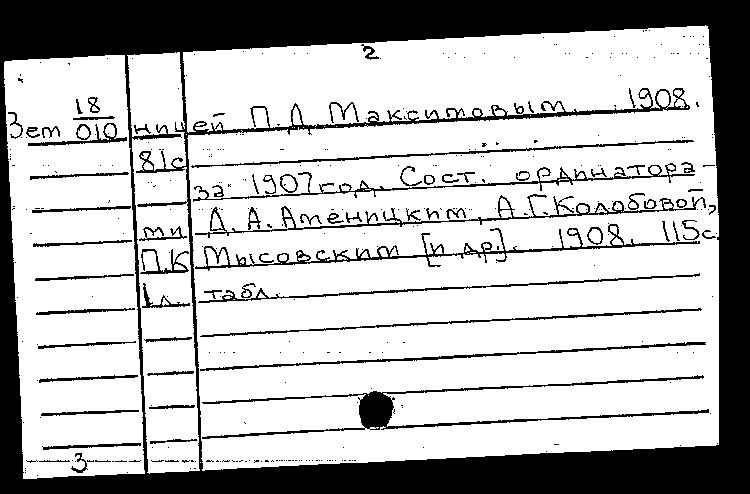 2
Зем 18/010 ницей П.Д. Максимовым. 1908.
81с
за 1907 год. Сост. ординатора-
ми Д.А. Аменицким, А.Г. Колобовой,
П.К Мысовским [и др]. 1908. 115с.
1л. табл.
3